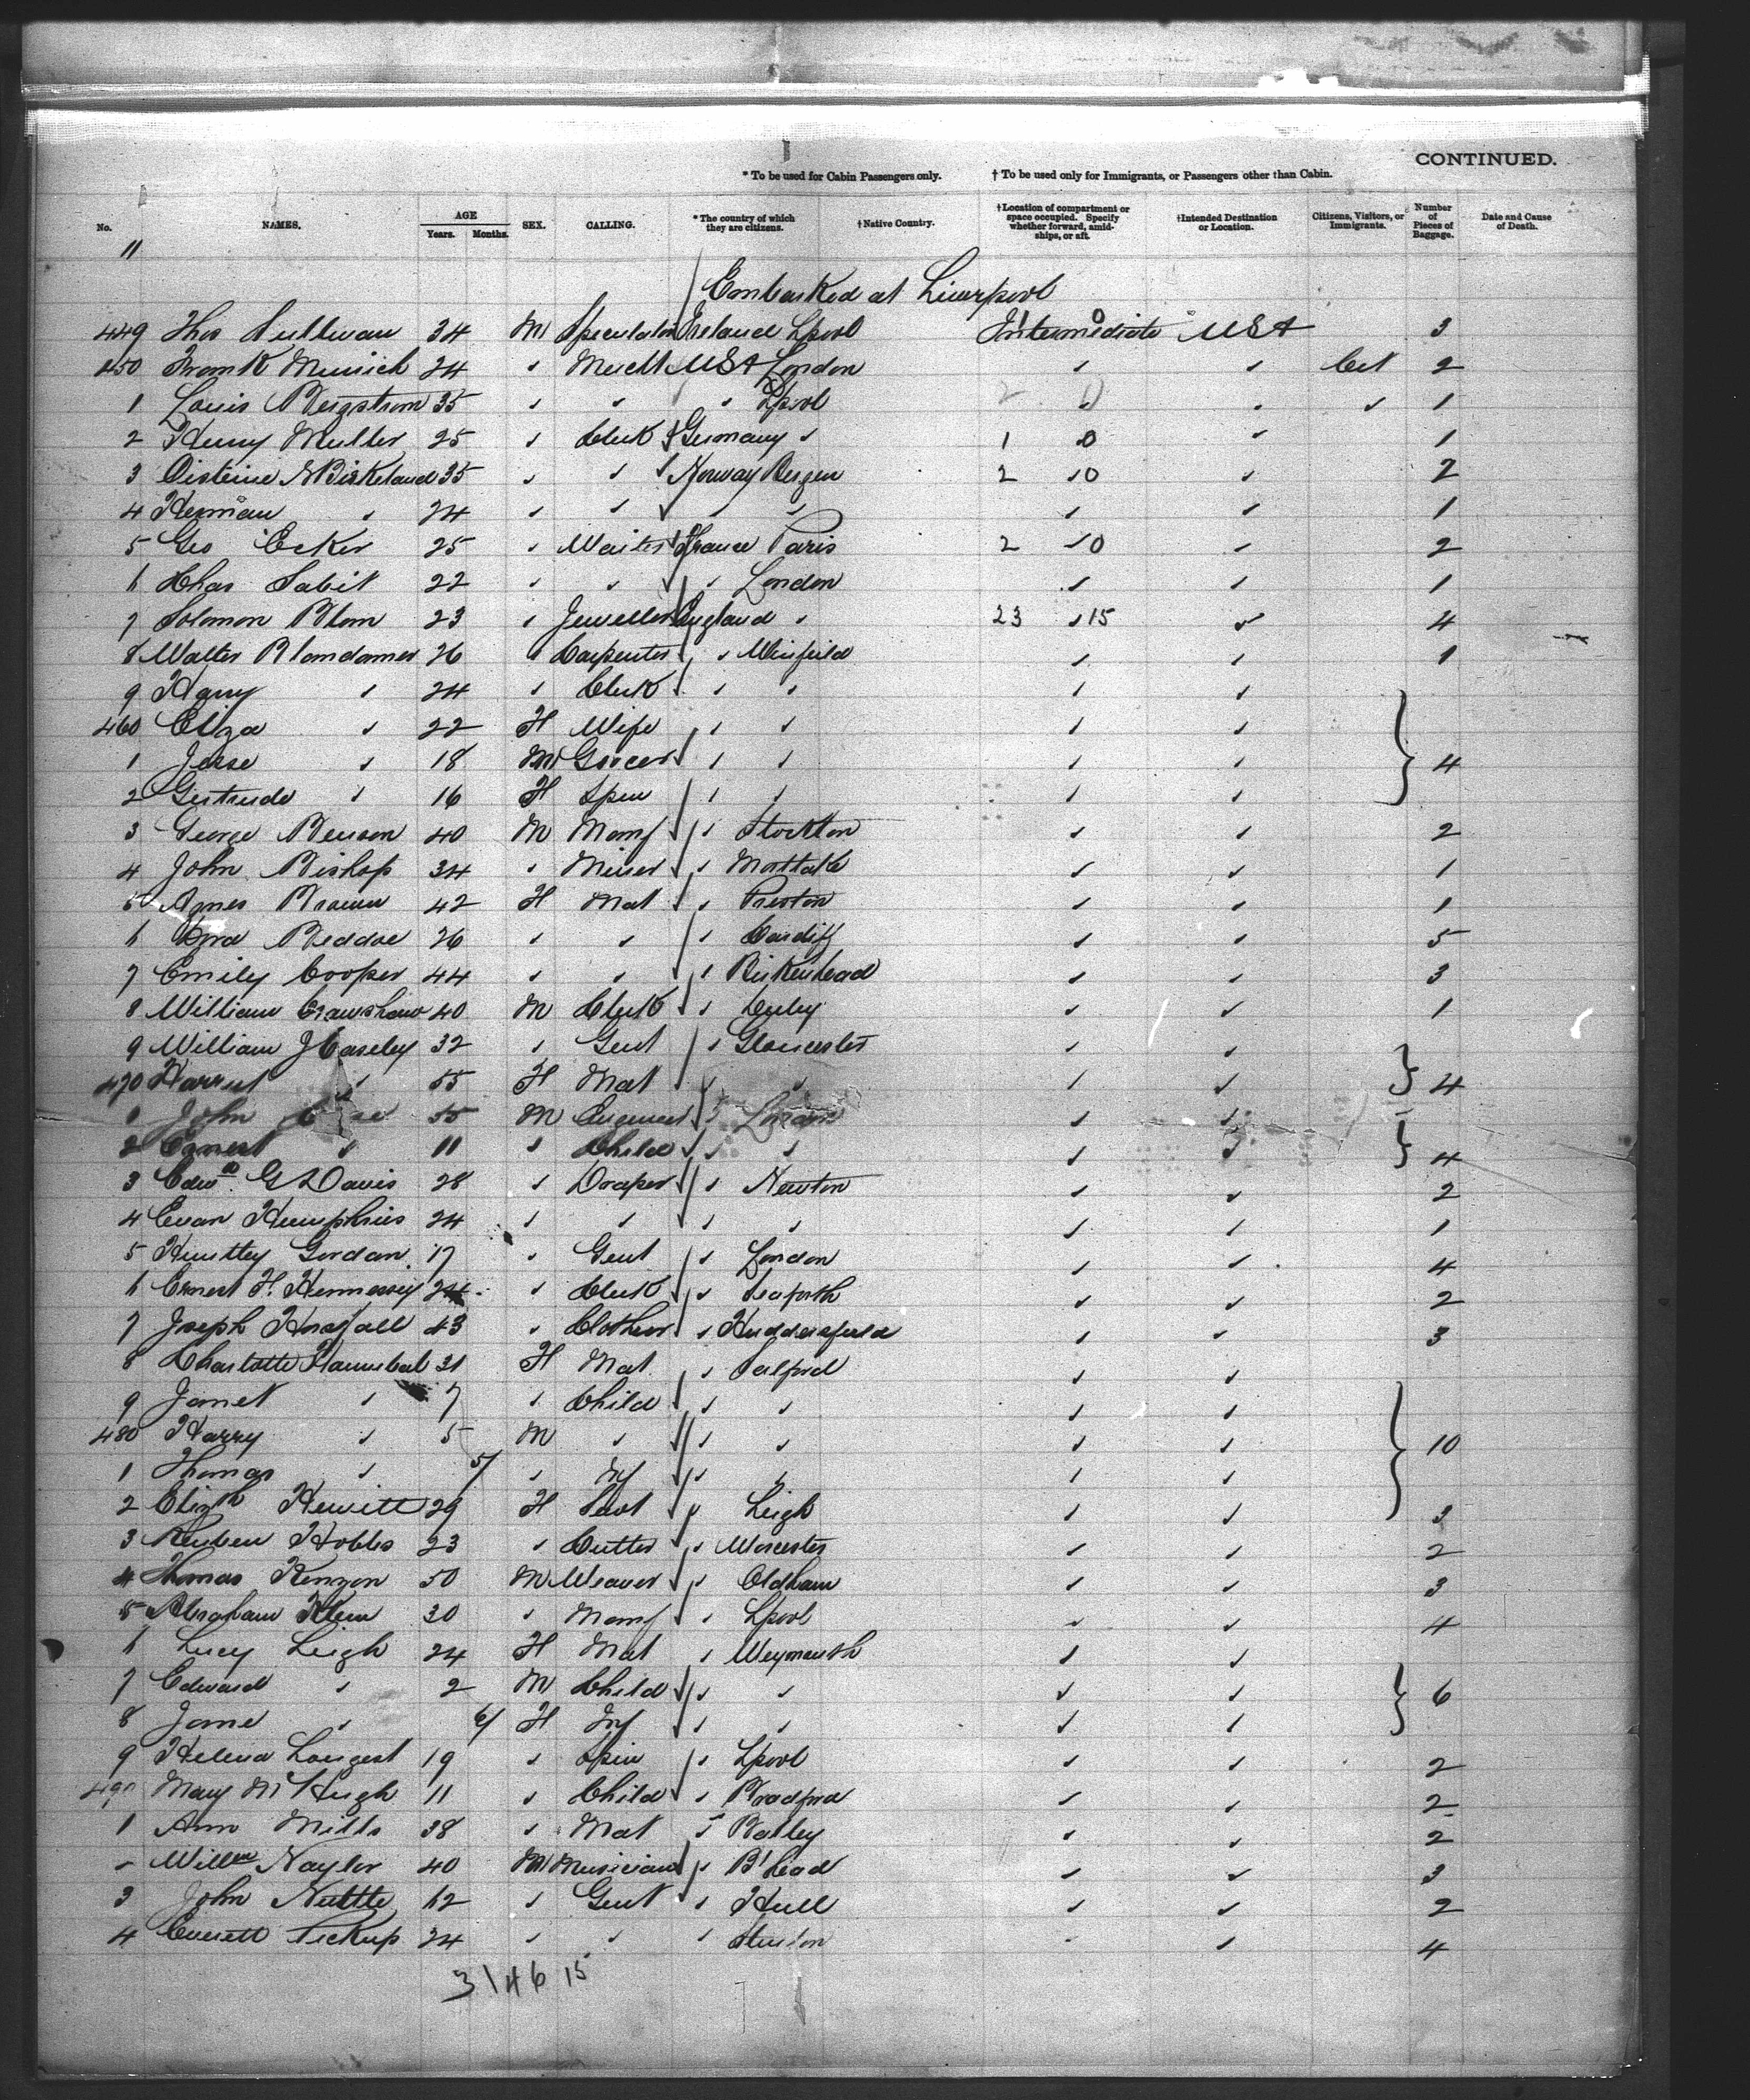 CONTINUED.
* To be used for Cabin Passengers only. † To be used only for Immigrants, or Passengers other than Cabin.
No. NAMES. AGE Years. Months. SEX. CALLING. * The country of which they are citizens. † Native Country. † Location of compartment or space occupied. Specify whether forward, amidships, or aft. † Intended Destination or Location. Citizens, Visitors, or Immigrants. Number of Pieces of Baggage. Date and Cause of Death.
11
Embarked at Liverpool
449 Thos Sullivan 34 M Speculator Ireland Lpool Intermediate USA 3
450 Frank 24 " Mercht USA London " " Cit 2
1 Louis Bergstrom 35 " " " Lpool " " " 1
2 Henry Muller 25 " Clerk Germany " 1 0 " 1
3 Birkeland 35 " " Norway Bergen 2 " 0 " 2
4 Herman " 24 " " " " " " 1
5 Geo Ecker 25 " Waiter France Paris 2 " 0 " 2
6 Chas Sabit 22 " " " London " " 1
7 Solomon Blom 23 " Jeweller England " 23 " 15 " 4
8 Walter 26 " Carpenter " " " 1
9 Harry " 24 " Clerk " " " "
460 Eliza " 22 F Wife " " " "
1 Jesse " 18 M Grocer " " " " 4
2 Gertrude " 16 F Spin " " " "
3 George Benson 40 M Manf " Stockton " " 2
4 John Bishop 34 " Miner " " " 1
5 Agnes Brown 42 F Mat " Preston " " 1
6 Beddoe 26 " " " Cardiff " " 5
7 Emily Cooper 44 " " " Birkenhead " " 3
8 William Crawshaw 40 M Clerk " " " 1
9 William J Caseley 32 " Gent " Gloucester " "
470 Harriet " 55 F Mat " " " " 4
1 John 35 M Engineer " London " "
2 Ernest " 11 " Child " " " " 4
3 Edwd. G Davis 28 " Draper " Newton " " 2
4 Evan Humphries 24 " " " " " " 1
5 Huntley Gordan 17 " Gent " London " " 4
6 Ernest H. Hennessy 24 " Clerk " Seaforth " " 2
7 Joseph Horsfall 43 " Clothier " Huddersfield " " 3
8 Charlotte Hannibal 31 F Mat " Salford " "
9 Janet " 7 " Child " " " "
480 Harry " 5 M " " " " " 10
1 Thomas " 5/ " Inf " " " "
2 Elizth Hewitt 29 F " Leigh " " 3
3 Reuben Hobbs 23 " Cutter " Worcester " " 2
4 Thomas Kenyon 50 M Weaver " Oldham " " 3
5 Abraham Klein 30 " Manf " Lpool " " 4
6 Lucy Leigh 24 F Mat " Weymouth " "
7 Edward " 2 M Child " " " " 6
8 Jane " 6/ F Inf " " " "
9 Helena Longest 19 " Spin " Lpool " " 2
490 Mary McHugh 11 " Child " Bradford " " 2
1 Ann Mills 38 " Mat " Batley " " 2
Willm Naylor 40 M Musician " B'head " " 3
3 John Nuttle 62 " Gent " Hull " " 2
4 Everett Pickup 24 " " " " " 4
3 1 46 15